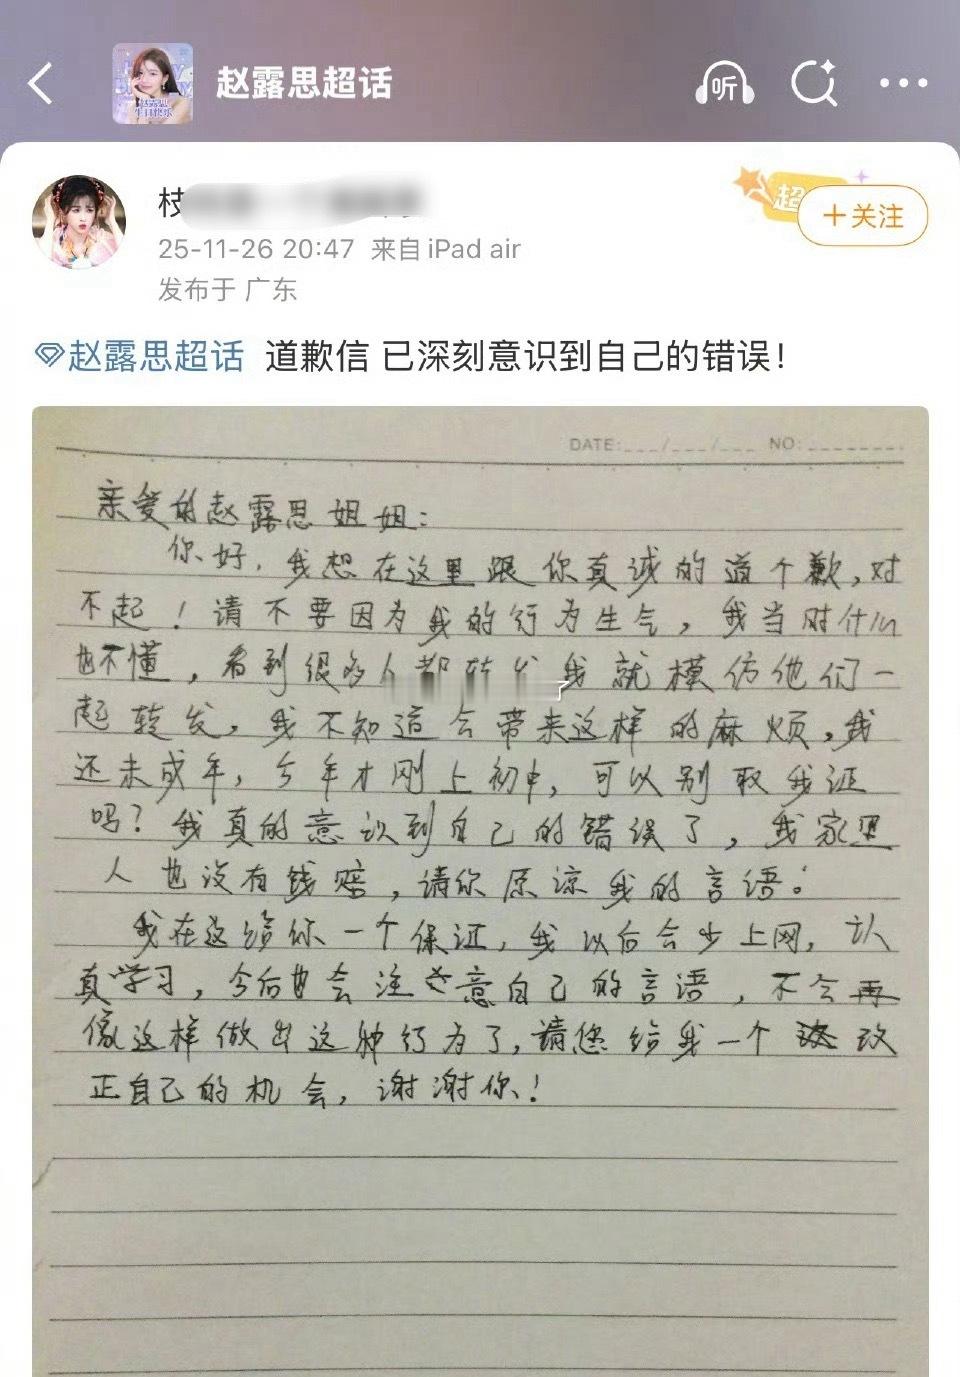 赵露思超话
听
赵露思
生日快乐
枝
超
+关注
25-11-26 20:47 来自 iPad air
发布于 广东
赵露思超话 道歉信 已深刻意识到自己的错误！
DATE:___/___/___ NO:_______
亲爱的赵露思姐姐：
你好，我想在这里跟你真诚的道个歉，对
不起！请不要因为我的行为生气，我当时什么
也不懂，看到很多人都转发我就模仿他们一
起转发，我不知道会带来这样的麻烦，我
还未成年，今年才刚上初中，可以别取我证
吗？我真的意识到自己的错误了，我家里
人也没有钱赔，请你原谅我的言语。
我在这给你一个保证，我以后会少上网，认
真学习，今后也会注意自己的言语，不会再
像这样做出这种行为了，请您给我一个改
正自己的机会，谢谢你！